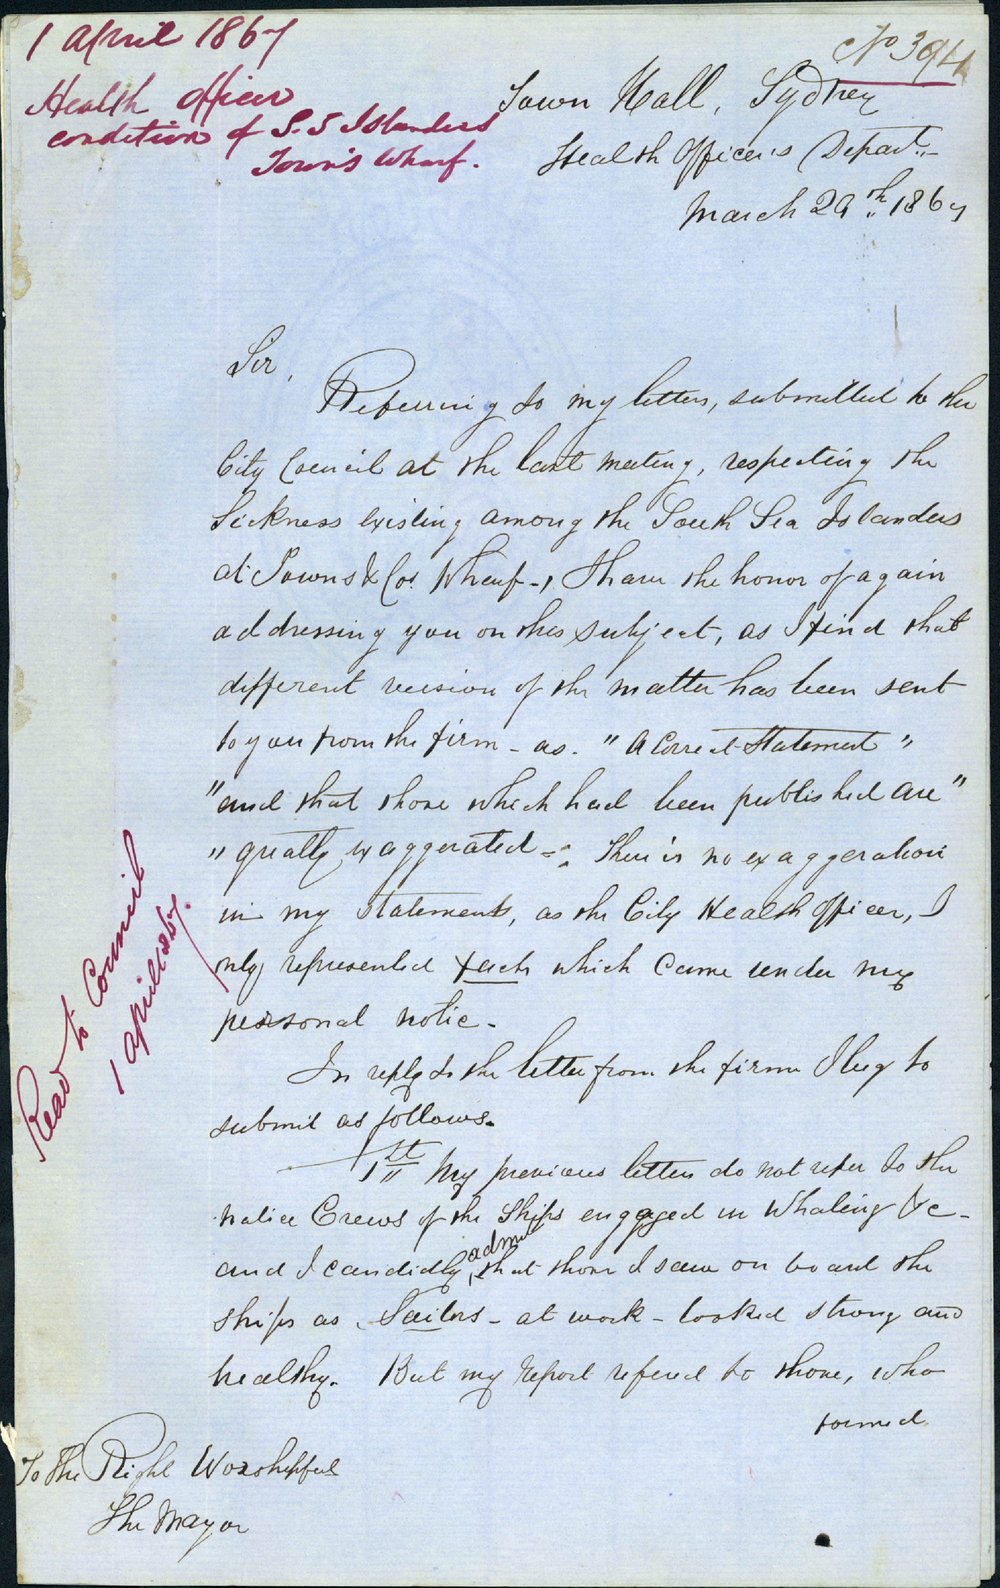 1 April 1867
Health Officer
condition of S. S Islanders
Town's Wharf.
No 394
Town Hall, Sydney
Health Officer's Depart.
March 29th 1867
Sir,
Referring to my letters, submitted to the
City Council at the last meeting, respecting the
Sickness existing among the South Sea Islanders
at Towns & Cos. Wharf -, I have the honor of again
addressing you on this subject, as I find that
different version of the matter has been sent
to you from the firm - as. "A Correct Statement"
"and that those which had been published are"
"greatly exaggerated - There is no exaggeration
in my Statements, as the City Health Officer, I
only represented facts which came under my
personal notice -
In reply to the letter from the firm I beg to
submit as follows.
1st My previous letters do not refer to the
native Crews of the Ships engaged in Whaling &c -
and I candidly admit that those I saw on board the
ships as Sailors - at work - looked strong and
healthy. But my report refered to those, who
formed
To the Right Worshipful
The Mayor
Read to Council
1 April 1867.